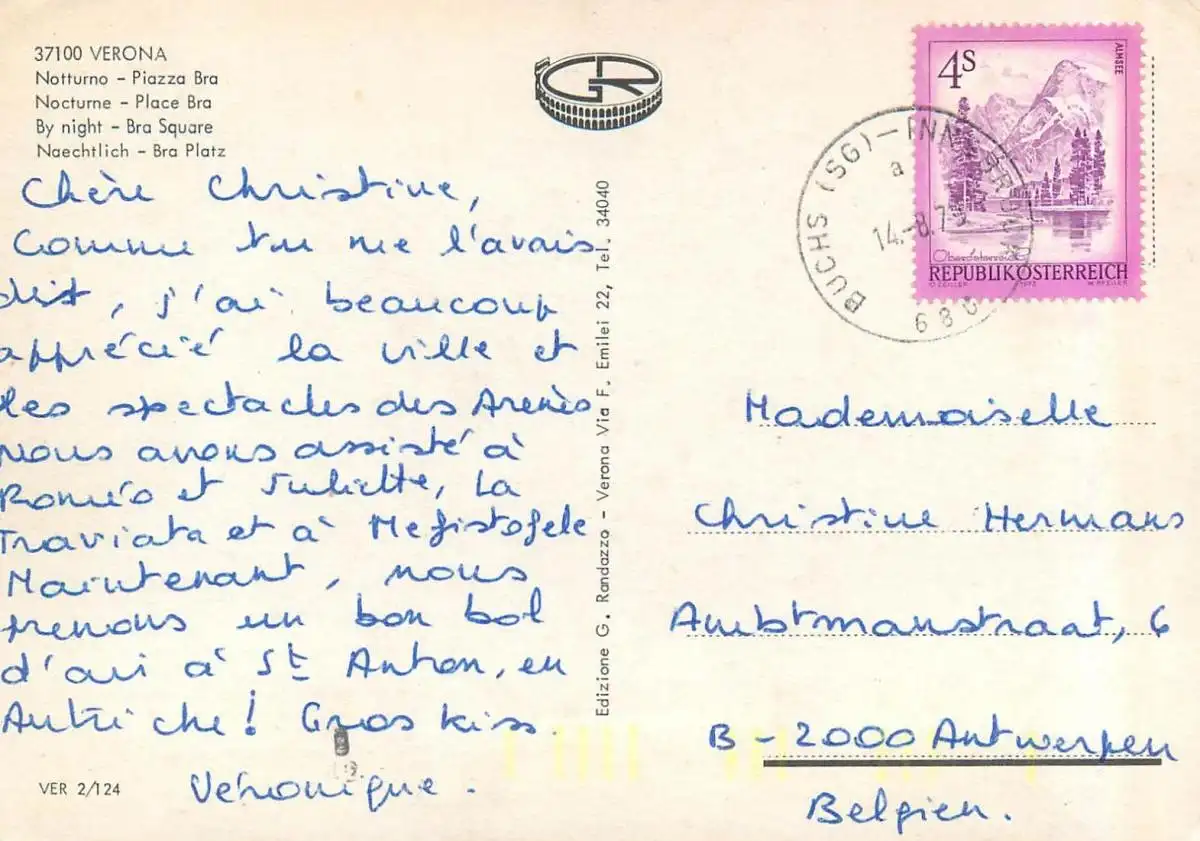 37100 VERONA
Notturno - Piazza Bra
Nocturne - Place Bra
By night - Bra Square
Naechtlich - Bra Platz
Chère Christine,
Comme tu me l'avais
dit, j'ai beaucoup
apprécié la ville et
les spectacles des Arènes
Nous avons assisté à
Roméo et Juliette, La
Traviata et à Mefistofele
Maintenant, nous
prenons un bon bol
d'air à St Anton, en
Autriche! Gros kiss.
Véronique.
VER 2/124
GR
Edizione G. Randazzo - Verona Via F. Emilei 22, Tel. 34040
4S
ALMSEE
Oberösterreich
REPUBLIK ÖSTERREICH
O. ZEILLER 1973 W. PFEILER
BUCHS (SG)-INNSBRUCK
a
14.-8.7
680
Mademoiselle
Christine Hermans
Ambtmanstraat, 6
B-2000 Antwerpen
Belgien.